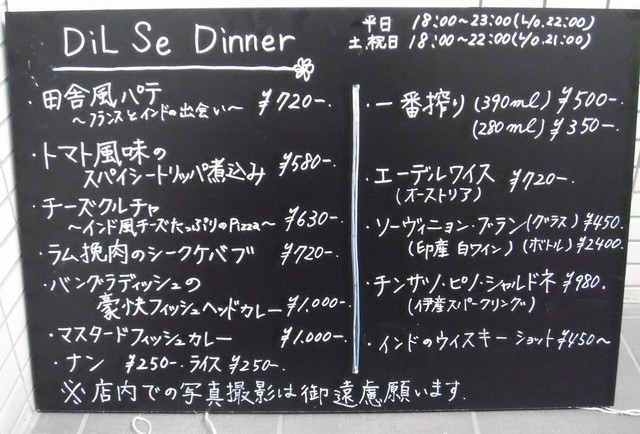 DiL Se Dinner
平日 18:00~23:00(L/o.22:00)
土.祝日 18:00~22:00(L/o.21:00)
・田舎風パテ ¥720-.
~フランスとインドの出会い~
・トマト風味の
スパイシートリッパ煮込み ¥580-.
・チーズクルチャ
~インド風チーズたっぷりのPizza~ ¥630-.
・ラム挽肉のシークケバブ ¥720-.
・バングラディッシュの
豪快フィッシュヘッドカレー ¥1.000-.
・マスタードフィッシュカレー ¥1.000-.
・ナン ¥250-. ライス ¥250-.
・一番搾り (390ml) ¥500-.
(280ml) ¥350-.
・エーデルワイス ¥720-.
(オーストリア)
・ソーヴィニョン・ブラン (グラス) ¥450.
(印産 白ワイン) (ボトル) ¥2400.
・チンザノ・ピノ・シャルドネ ¥980.
(伊産スパークリング)
・インドのウィスキー ショット ¥450~
※店内での写真撮影は御遠慮願います.